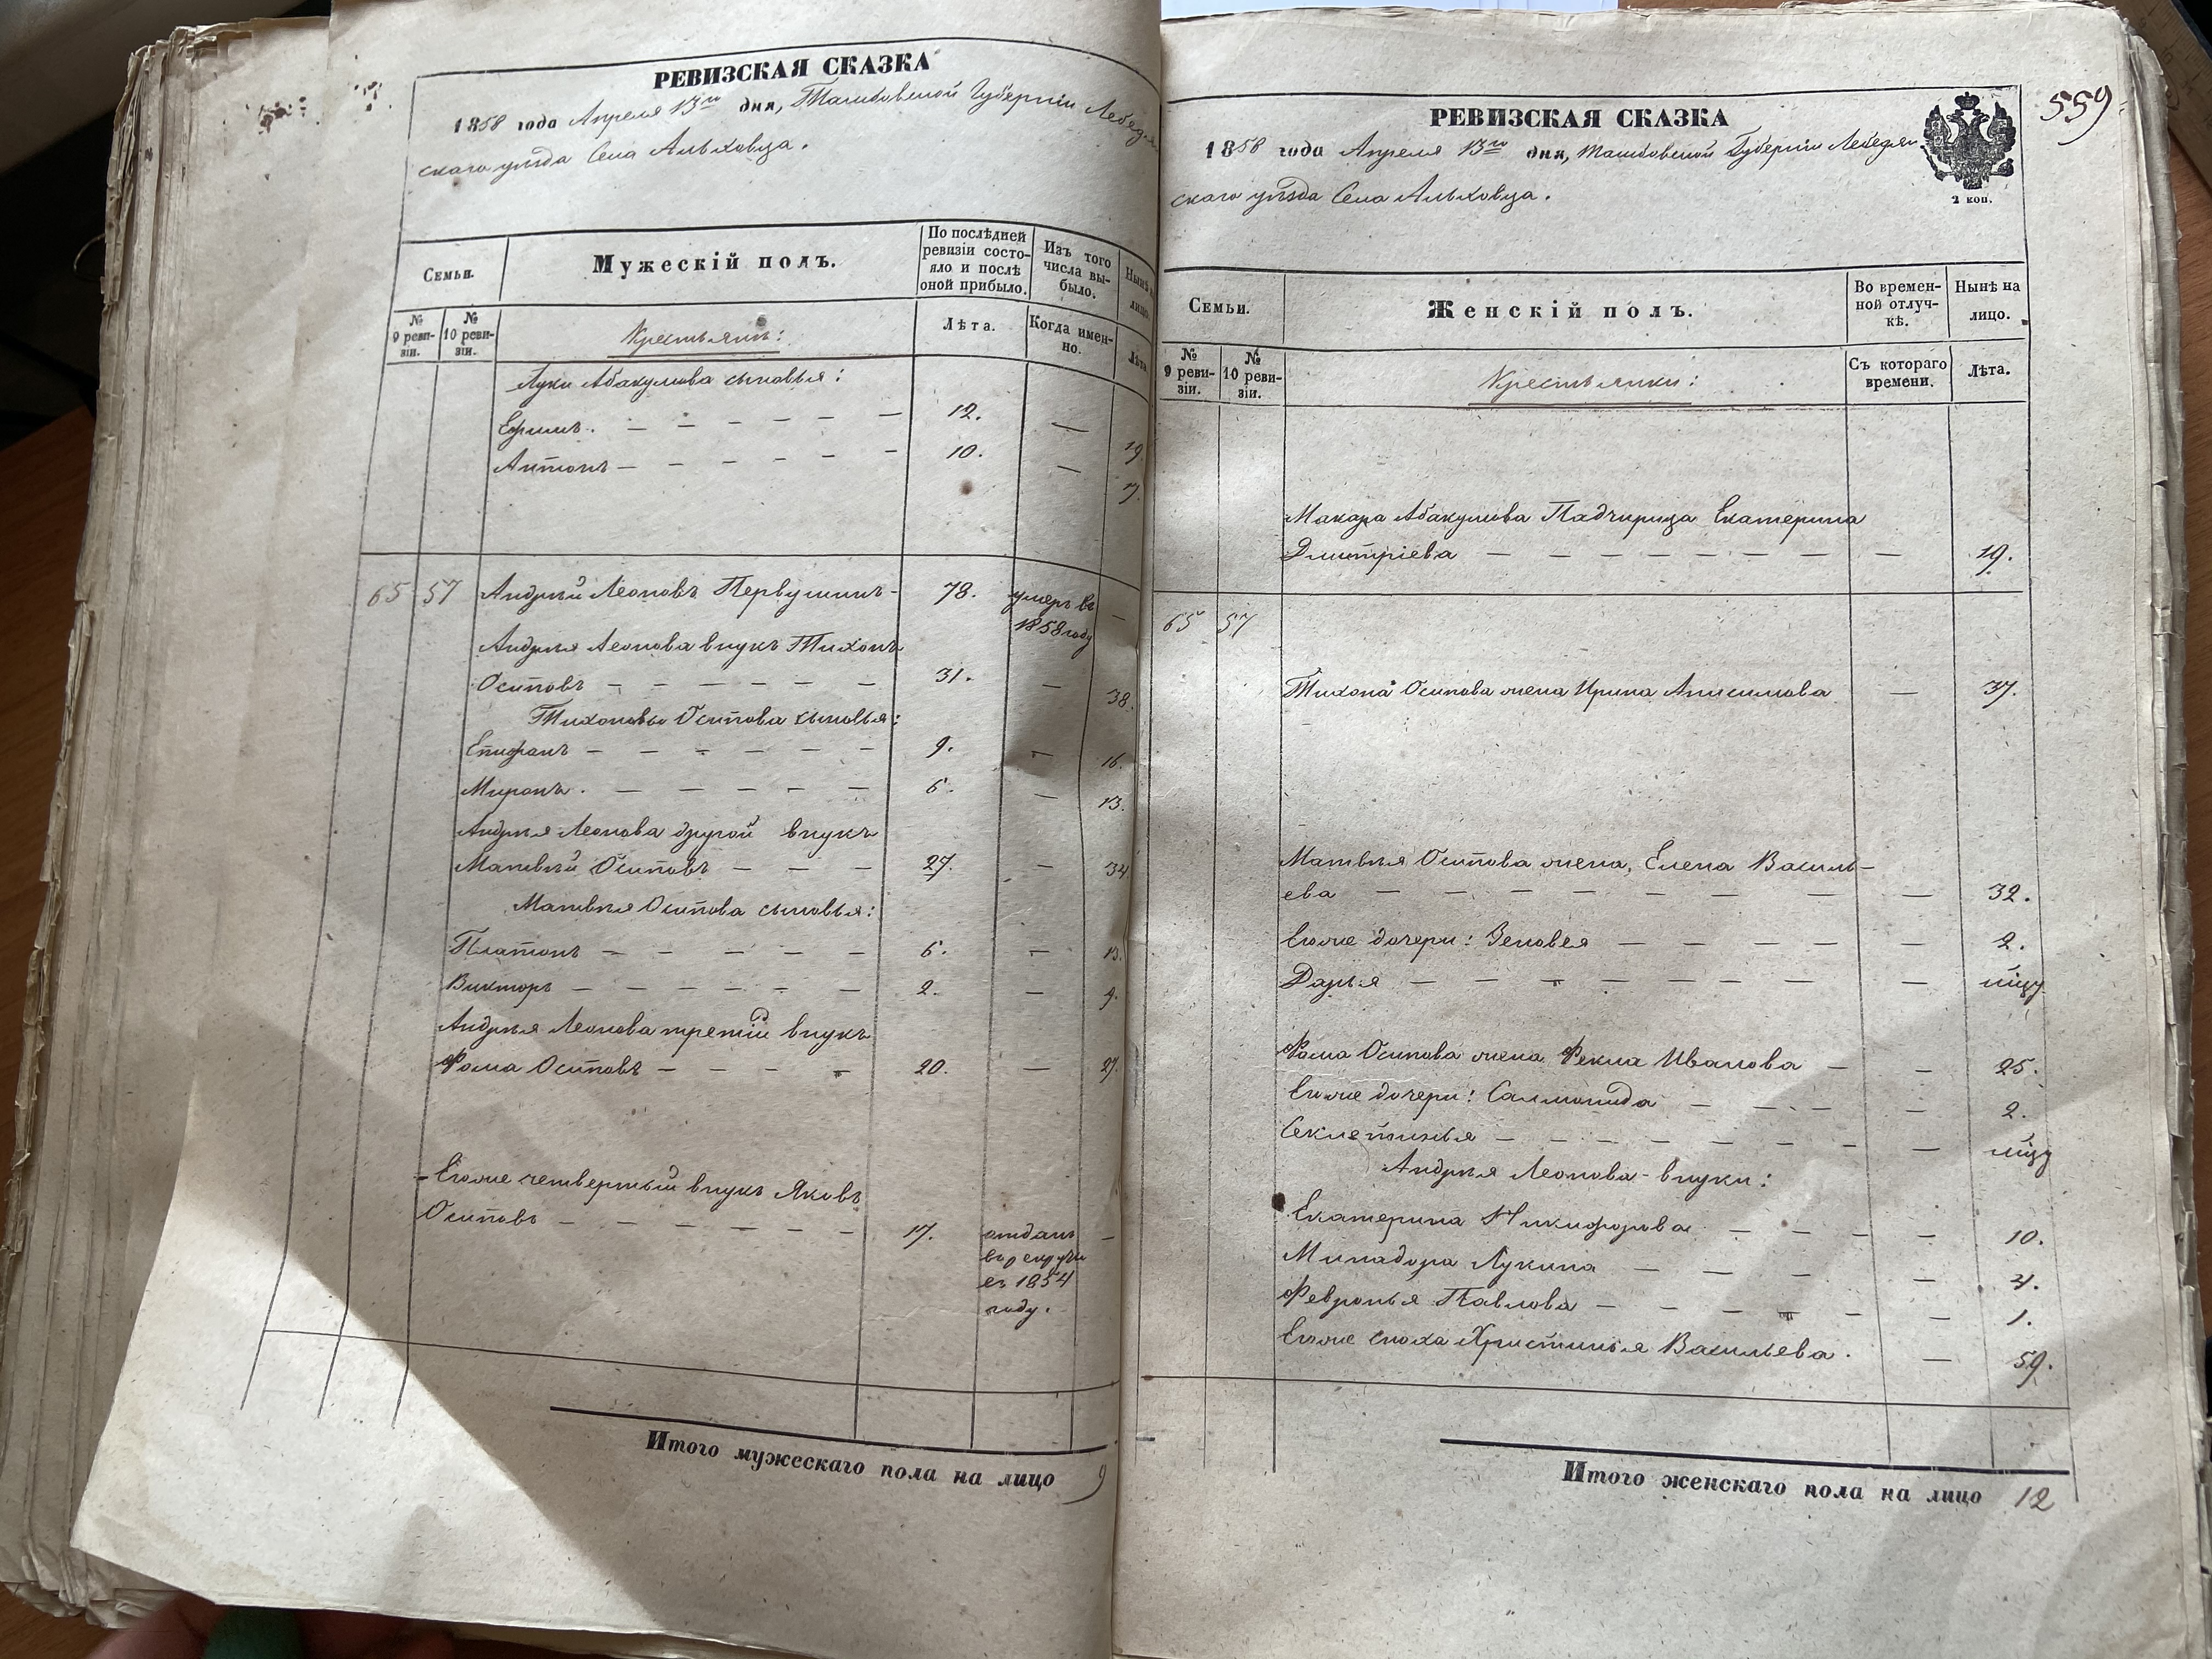 РЕВИЗСКАЯ СКАЗКА
1858 года Апреля 13го дня, Тамбовской Губерніи Лебедян
скаго уѣзда Села Альховца.
Семьи.
Мужескій полъ.
По послѣдней ревизіи состояло и послѣ оной прибыло.
Изъ того числа выбыло.
Нынѣ на лицо.
№ 9 ревизіи.
№ 10 ревизіи.
Крестьянъ:
Лѣта.
Когда именно.
Лѣта.
Луки Абакумова сыновья:
Ефимъ. — — — — — — 12. — 19
Антонъ — — — — — — 10. — 17.
65 57 Андрей Леоновъ Первушинъ - 78. умеръ въ 1858 году —
Андрея Леонова внукъ Тихонъ
Осиповъ — — — — — — 31. — 38.
Тихоновы Осипова сыновья:
Епифанъ — — — — — — 9. — 16.
Миронъ. — — — — — 6. — 13.
Андрея Леонова другой внукъ
Матвѣй Осиповъ — — — 27. — 34
Матвѣя Осипова сыновья:
Платонъ — — — — — 6. — 13.
Викторъ — — — — — — 2. — 9.
Андрея Леонова третій внукъ
Фома Осиповъ — — — — 20. — 27.
Егоже четвертый внукъ Яковъ
Осиповъ — — — — — — 17. отданъ въ рекруты въ 1854 году. —
Итого мужескаго пола на лицо 9
559
РЕВИЗСКАЯ СКАЗКА
1858 года Апреля 13го дня, Тамбовской Губерніи Лебедян
скаго уѣзда Села Альховца.
2 коп.
Семьи.
Женскій полъ.
Во временной отлучкѣ.
Нынѣ на лицо.
№ 9 ревизіи.
№ 10 ревизіи.
Крестьянки:
Съ котораго времени.
Лѣта.
Макара Абакумова Падчирица Екатерина
Дмитріева — — — — — — — — 19.
65 57
Тихона Осипова жена Ирина Анисимова — 37.
Матвѣя Осипова жена, Елена Василь-
ева — — — — — — — — — 32.
Егоже дочери: Зеновея — — — — — — 2.
Дарья — — — — — — — — —
Фома Осипова жена Фекла Иванова — — 25.
Егоже дочери: Саломонида — — — — — 2.
Секлетинья — — — — — — — —
Андрея Леонова - внуки:
Екатерина Никифорова — — — — — 10.
Минадора Лукина — — — — — 4.
Февронья Павлова — — — — — — 1.
Егоже сноха Христинья Васильева. — 59.
Итого женскаго пола на лицо 12